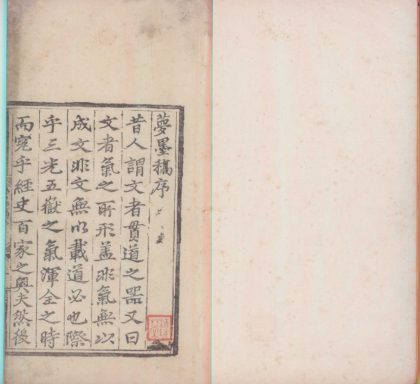 夢墨稿序
昔人謂文者貫道之器又曰
文者氣之所形蓋非氣無以
成文非文無以載道必也際
乎三光五嶽之氣渾全之時
而究乎經史百家之奧夫然後